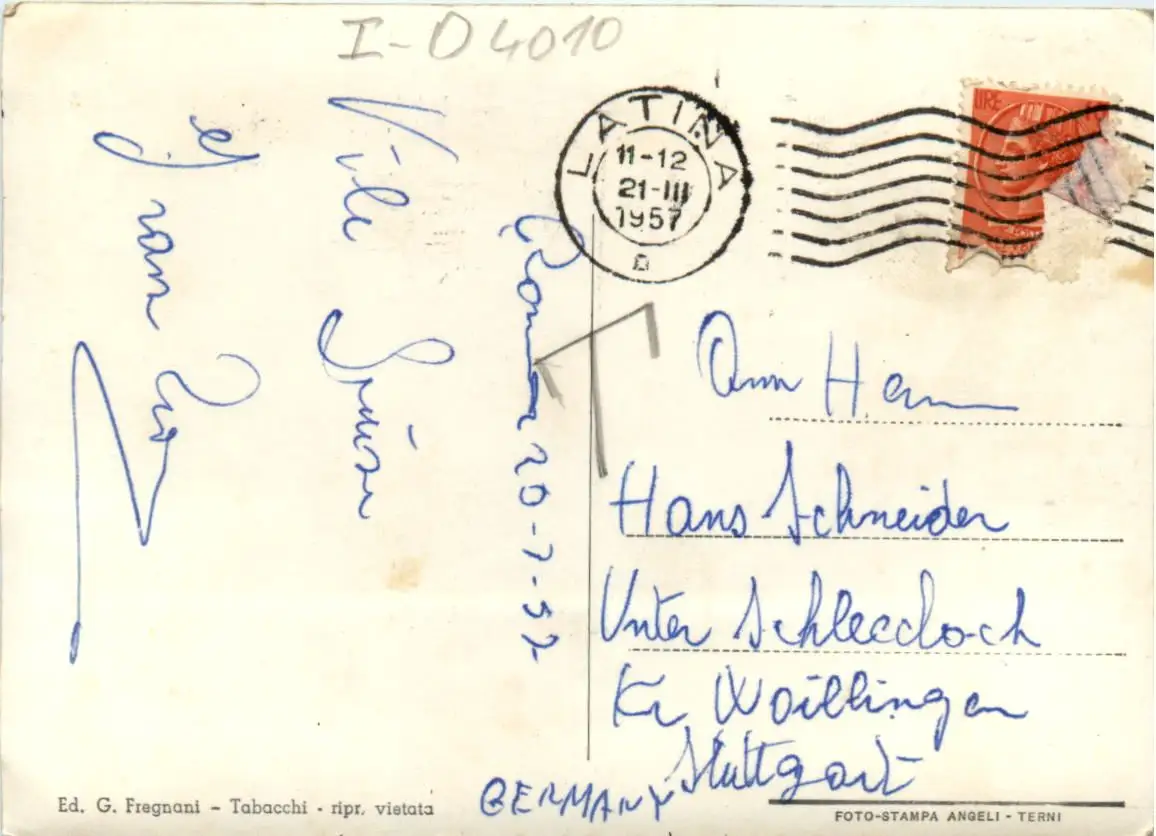 I-D 4010
LATINA
11-12
21-III
1957
LIRE
Roma 20-3-57
Viele Grüsse
Hans Schneider
Unter Schlechdoch
Kr Woillingen
Stuttgart
GERMANY
Ed. G. Fregnani - Tabacchi - ripr. vietata
FOTO-STAMPA ANGELI - TERNI